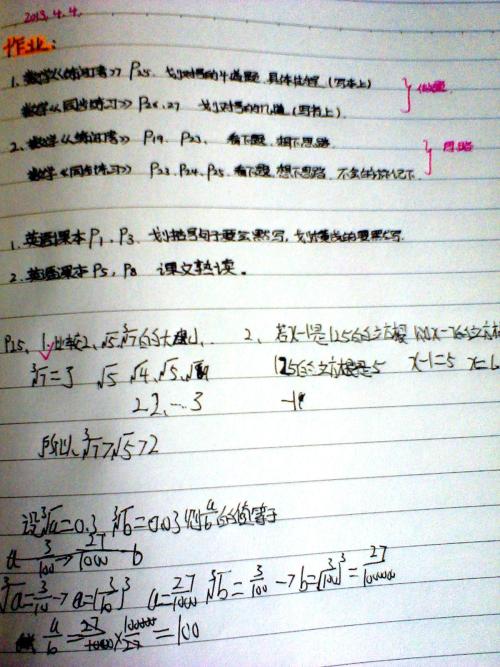 2013.4.4.
作业:
1. 数学《练闯考》 P25. 划对号的4道题 具体过程 (写本上)
数学《同步练习》 P26,27 划对号的几道 (写书上)
2、数学《练闯考》 P19、P23、看下题、想下思路
数学《同步练习》 P23、P24、P25、看下题, 想下思路 不会的标记下.
思路
1、英语课本 P1、P3、划括号句子要会默写, 划横线的要默写.
2、英语课本 P5、P8 课文熟读。
P25、1. 比较2、√5、³√7的大小. 2、若x-1是125的立方根
³√7=3 √5 √4、√5、 125的立方根是5 x-1=5 x=6
2 2、… 3
所以、³√7>√5>2
设³√a=0.3、³√b=0.03则a/b的值等于
a 3/100 → 27/1000 b
³√a=3/10→a=(3/10)³ a=27/1000 ³√b=3/100→b=(3/100)³=27/100000
a/b=27/1000×100000/27=100